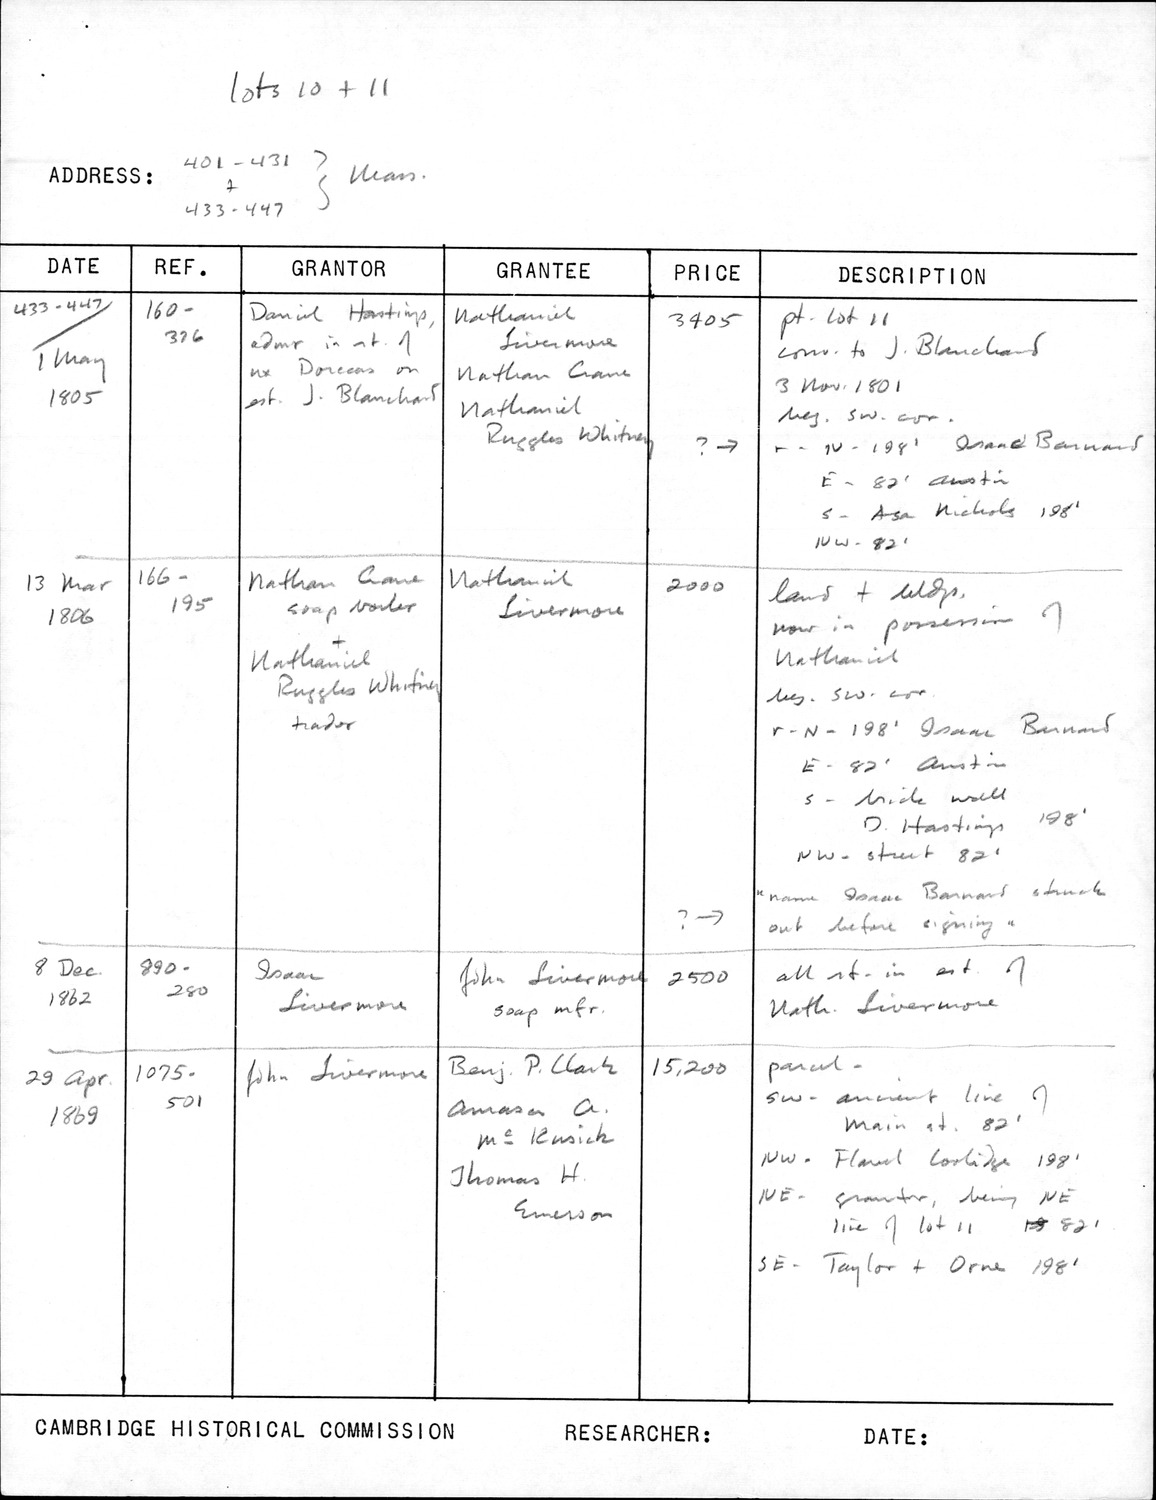 lots 10 + 11
ADDRESS: 401-431 + 433-447 } Mass.
DATE REF. GRANTOR GRANTEE PRICE DESCRIPTION
433-447
1 May
1805
160-
376
Daniel Hastings,
admr in rt. of
ux Dorcas on
est. J. Blanchard
Nathaniel
Livermore
Nathan Crane
Nathaniel
Ruggles Whitney
3405
? →
pt. lot 11
conv. to J. Blanchard
3 Nov. 1801
beg. SW. cor.
r - N - 198' Isaac Barnard
E - 82' Austin
S - Asa Nichols 198'
NW - 82'
13 Mar
1806
166-
195
Nathan Crane
soap boiler
+
Nathaniel
Ruggles Whitney
trader
Nathaniel
Livermore
2000
? →
land + bldgs.
now in possession of
Nathaniel
beg. SW. cor.
r - N - 198' Isaac Barnard
E - 82' Austin
S - brick wall
D. Hastings 198'
NW - street 82'
"name Isaac Barnard struck
out before signing"
8 Dec.
1862
890-
280
Isaac
Livermore
John Livermore
soap mfr.
2500
all rt. in est. of
Nath. Livermore
29 Apr.
1869
1075-
501
John Livermore
Benj. P. Clark
Amasa A.
Mc Kusick
Thomas H.
Emerson
15,200
parcel -
SW - ancient line of
Main st. 82'
NW - Flavel Coolidge 198'
NE - grantor, being NE
line of lot 11 82'
SE - Taylor + Orne 198'
CAMBRIDGE HISTORICAL COMMISSION RESEARCHER: DATE: